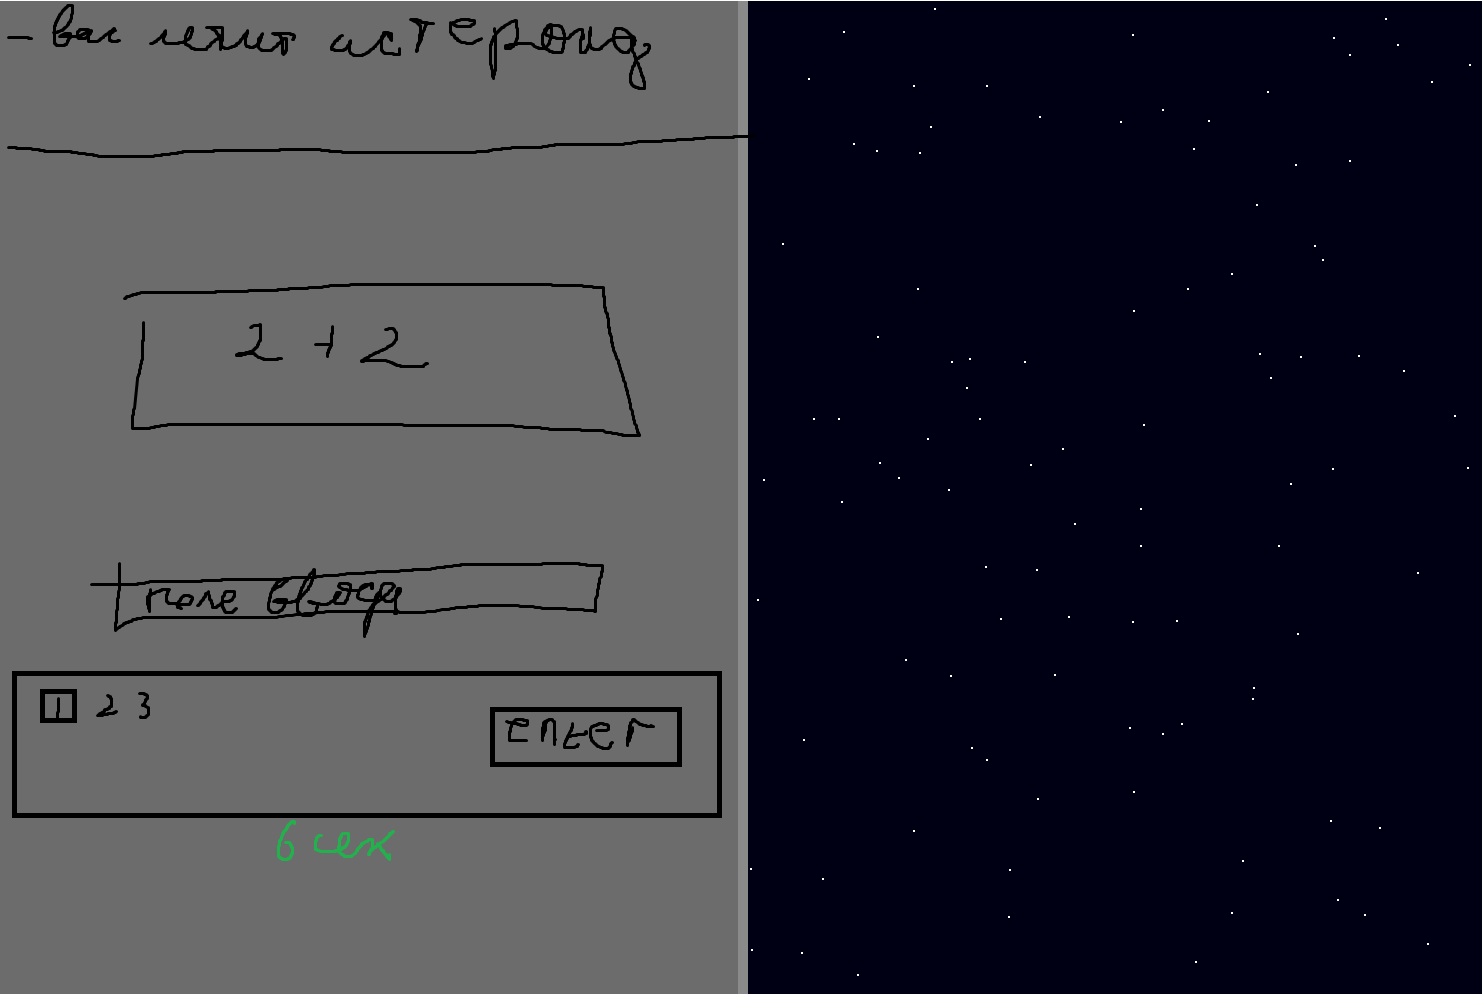 - вас летит астероид
2 + 2
поле ввода
1 2 3
enter
6 сек